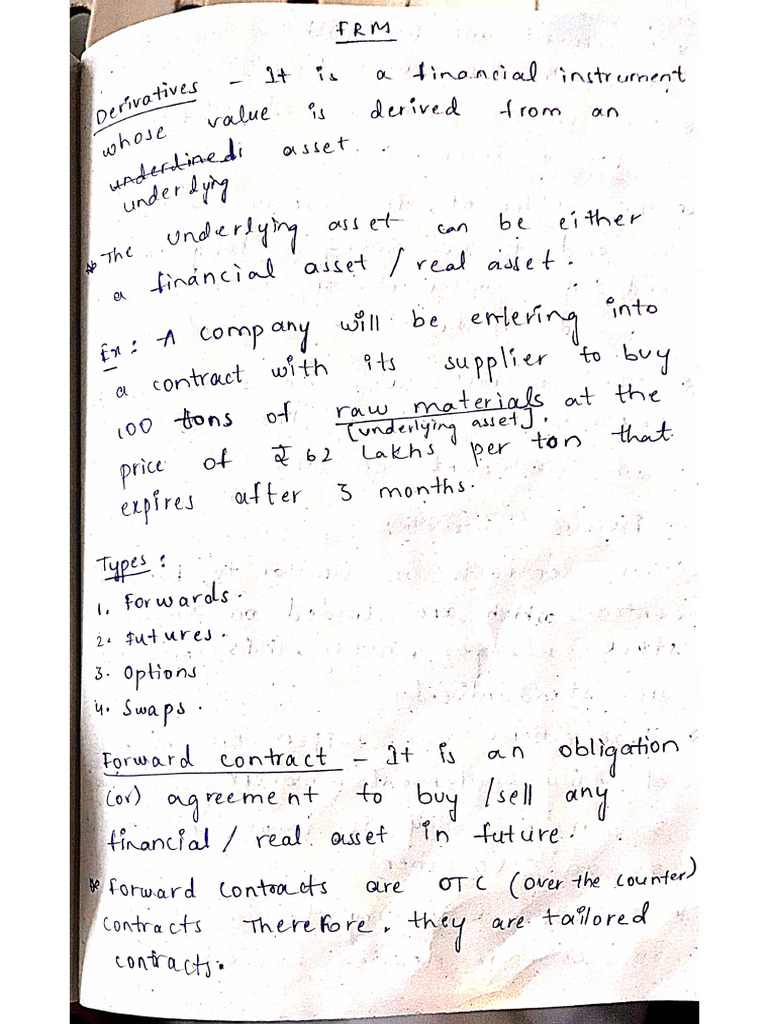 FRM
Derivatives - It is a financial instrument
whose value is derived from an
underlined asset.
underlying
* The underlying asset can be either
a financial asset / real asset.
Ex: A company will be entering into
a contract with its supplier to buy
100 tons of raw materials at the
[underlying asset].
price of ₹ 62 Lakhs per ton that
expires after 3 months.
Types:
1. Forwards.
2. Futures.
3. Options
4. Swaps.
Forward contract - It is an obligation
(or) agreement to buy / sell any
financial / real asset in future.
* Forward contracts are OTC (over the counter)
contracts Therefore, they are tailored
contracts.